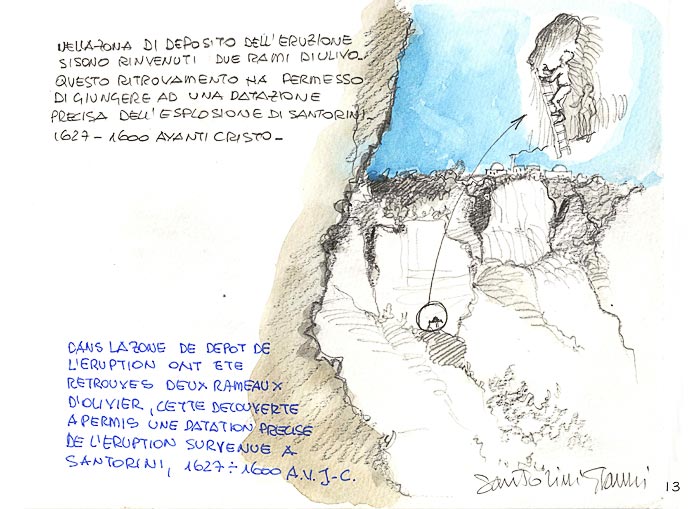 NELLA ZONA DI DEPOSITO DELL'ERUZIONE
SI SONO RINVENUTI DUE RAMI DI ULIVO_
QUESTO RITROVAMENTO HA PERMESSO
DI GIUNGERE AD UNA DATAZIONE
PRECISA DELL'ESPLOSIONE DI SANTORINI_
1627-1600 AVANTI CRISTO_
DANS LA ZONE DE DEPOT DE
L'ERUPTION ONT ETE
RETROUVES DEUX RAMEAUX
D'OLIVIER, CETTE DECOUVERTE
A PERMIS UNE DATATION PRECISE
DE L'ERUPTION SURVENUE A
SANTORINI, 1627÷1600 A.V. J-C.
Santorini Gianni
13